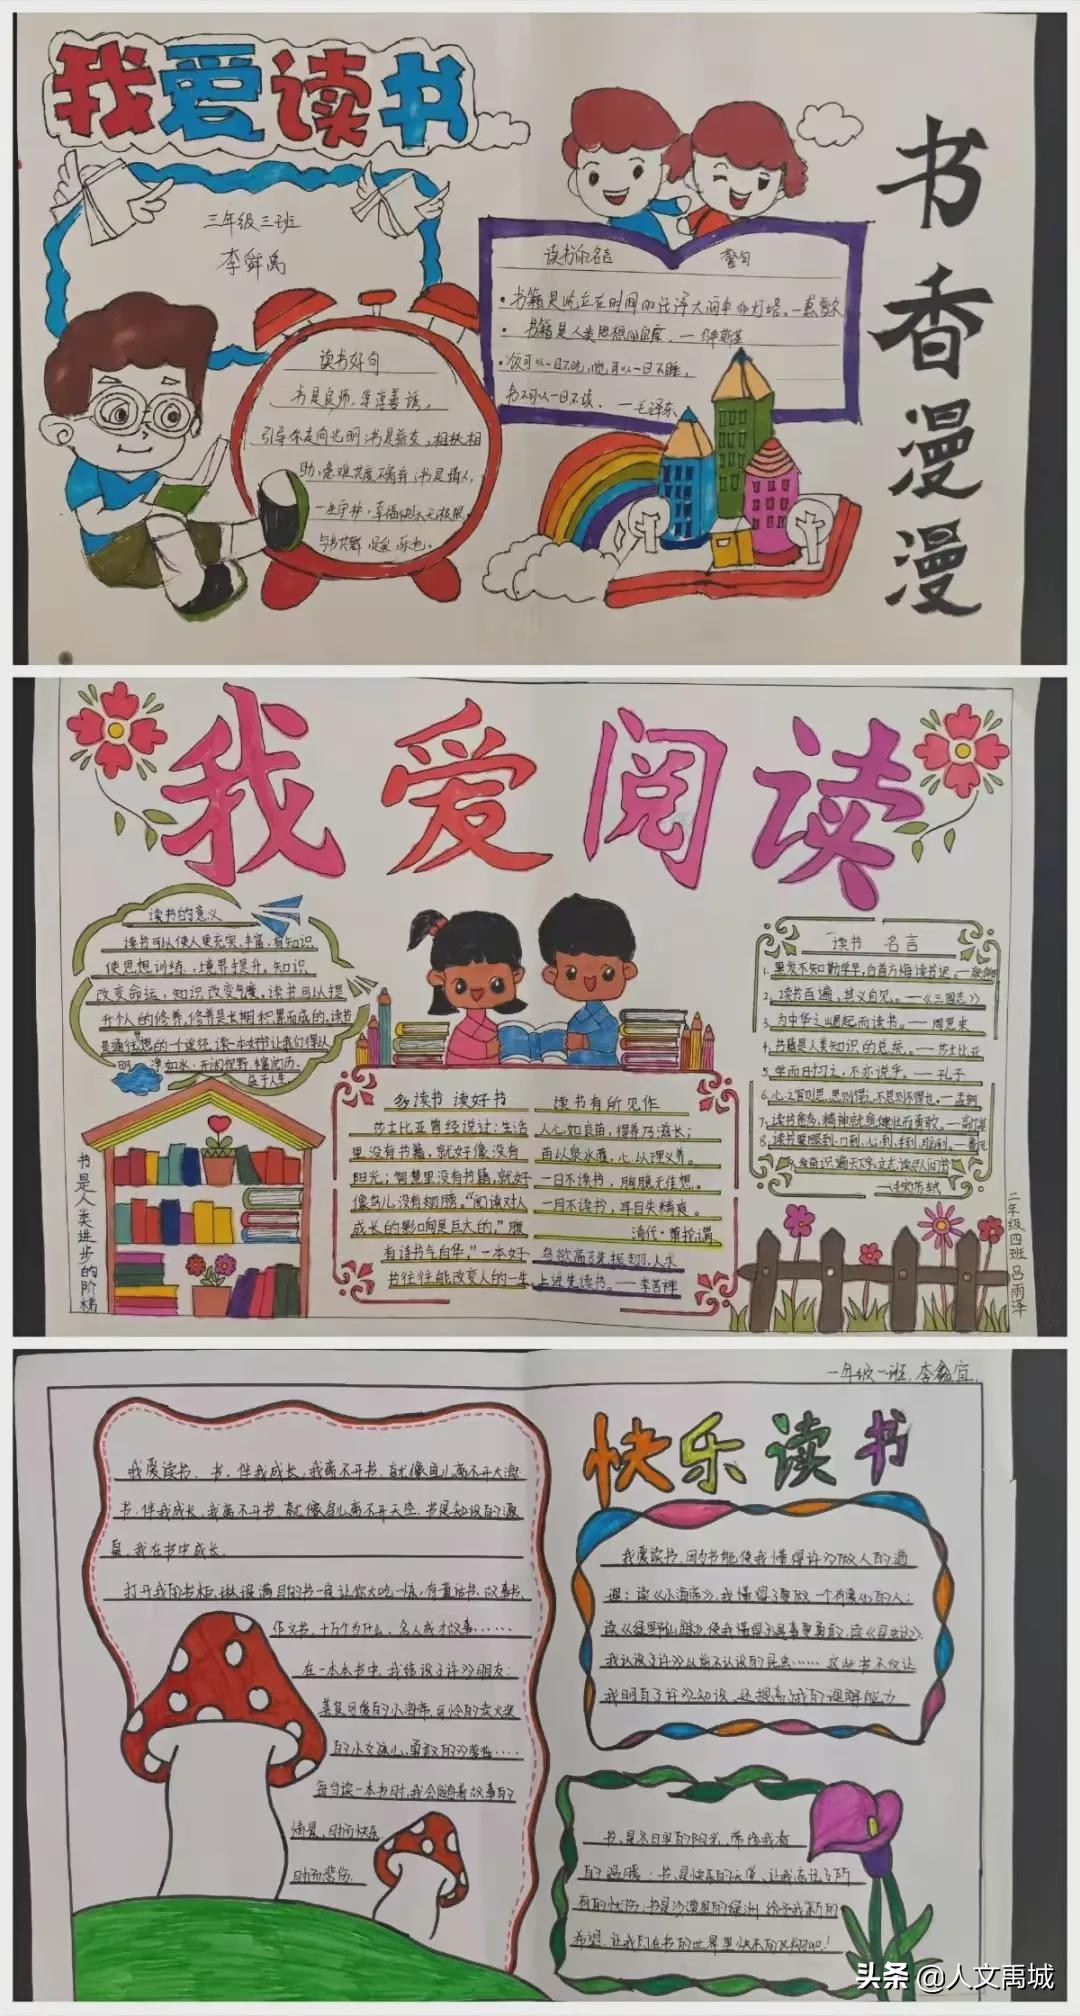 我爱读书
三年级三班
李舜禹
读书好句
书是良师,谆谆善诱,
引导你走向光明;书是益友,相扶相
助,患难共度不离弃;书是情人,
一生守护,幸福快乐无极限。
与书共舞
读书的名言 警句
·书籍是屹立在时间的汪洋大海中的灯塔。
·书籍是人类思想的宝库。
·饭可以一日不吃,觉可以一日不睡,
书不可以一日不读。—毛泽东
书香漫漫
我爱阅读
读书的意义
读书可以使人更充实、丰富,有知识,
使思想训练,境界提升。知识
改变命运,知识改变气度。读书可以提
升个人的修养,修养是长期积累而成的。读书
是通往梦想的一个途径,读一本好书让我们得以
明净如水,开阔视野,丰富阅历,
益于人生
书是人类进步的阶梯
多读书 读好书
莎士比亚曾经说过:生活
里没有书籍,就好像没有
阳光;智慧里没有书籍,就好
像鸟儿没有翅膀。“阅读对人
成长的影响是巨大的,”腹
有诗书气自华,”一本好
书往往能改变人的一生。
读书有所见作
人心如良苗,得养乃滋长;
苗以泉水灌,心以理义养。
一日不读书,胸臆无佳想。
一月不读书,耳目失精爽。
清代·萧抡谓
鸟欲高飞先振翅,人求
上进先读书。——李苦禅
读书 名言
1、黑发不知勤学早,白首方悔读书迟。
2、读书百遍,其义自见。—《三国志》
3、为中华之崛起而读书。—周恩来
4、书籍是人类知识的总统。—莎士比亚
5、学而时习之,不亦说乎。—孔子
6、心之官则思,思则得之,不思则不得也。—孟轲
7、读书愈多,精神就愈健壮而勇敢。—高尔基
8、读书要眼到、口到、心到、手到、脑到。
识遍天下字,立志读尽人间书
—苏轼
二年级四班 吕雨泽
一年级一班.李鑫宜
快乐读书
我爱读书。书,伴我成长,我离不开书,就像鱼儿离不开大海
书,伴我成长,我离不开书,就像鸟儿离不开天空,书是知识的源
泉,我在书中成长。
打开我的书柜,琳琅满目的书一定让你大吃一惊,有童话书、故事书、
作文书、十万个为什么、名人成才故事……
在一本本书中,我结识了许多朋友:
善良可爱的小海蒂,可怜的卖火柴
的小女孩儿,勇敢的
每当读一本书时,我会随着故事的
情景,时而快乐
时而悲伤.
我爱读书,因为书能使我懂得许多做人的道
理:读《小海蒂》,我懂得了要做一个有爱心的人;
读《绿野仙踪》,使我懂得了遇事要勇敢;读《昆虫记》,
我认识了许多以前不认识的昆虫……这些书不仅让
我明白了许多知识,还提高了我的理解能力
书,是冬日里的阳光,带给我春
的温暖;书,是快乐的天堂,让我忘记了所
有的忧伤;书是沙漠里的绿洲,给予我新的
希望,让我们在书的世界里快乐的飞翔吧!
头条 @人文禹城